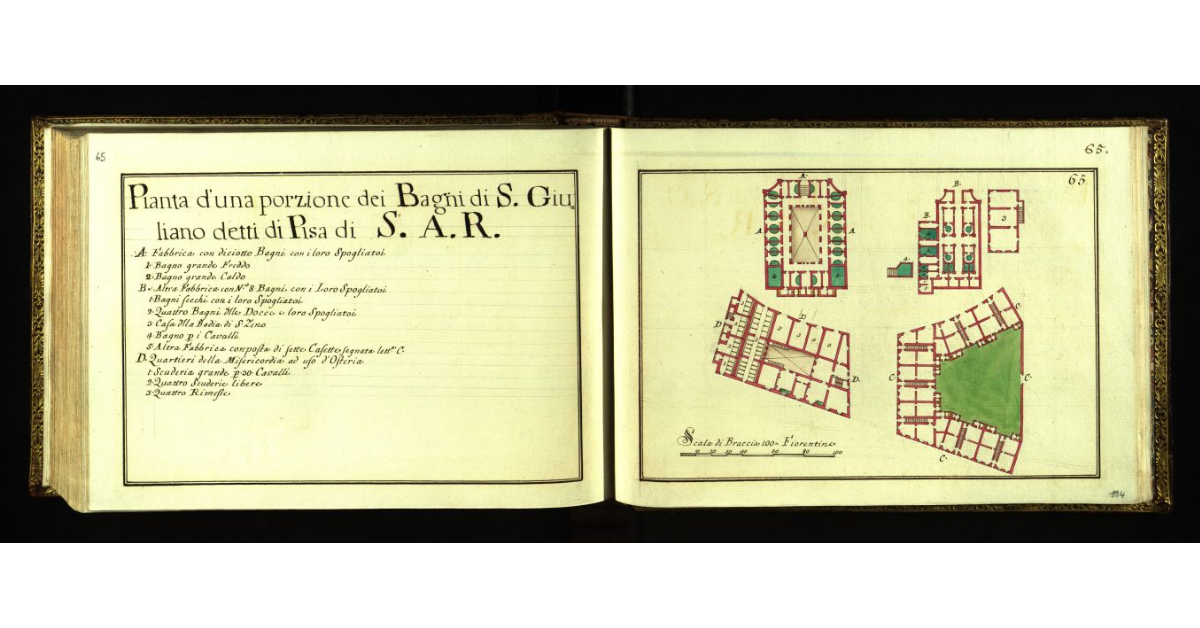 65
Pianta d'una porzione dei Bagni di S. Giu
liano detti di Pisa di S. A. R.
A. Fabbrica con diciotto Bagni con i loro Spogliatoi
1. Bagno grande Freddo
2. Bagno grande Caldo
B. Altra Fabbrica con N.º 8. Bagni con i Loro Spogliatoi
1. Bagni secchi con i loro Spogliatoi
2. Quattro Bagni dlle Docce e loro Spogliatoi
3. Casa dlla Badia di S. Zeno
4. Bagno p i Cavalli
5. Altra Fabbrica composta di sette Casette segnata lett.ª C.
D. Quartieri della Misericordia ad uso d'Osteria
1. Scuderia grande p 30 Cavalli
2. Quattro Scuderie libere
3. Quattro Rimesse
65.
65
A.
A
A
B.
B.
3
4.
D
D
D.
C.
C.
C.
C.
Scala di Braccia 100 Fiorentine
10 20 30 40 60 80 100
194